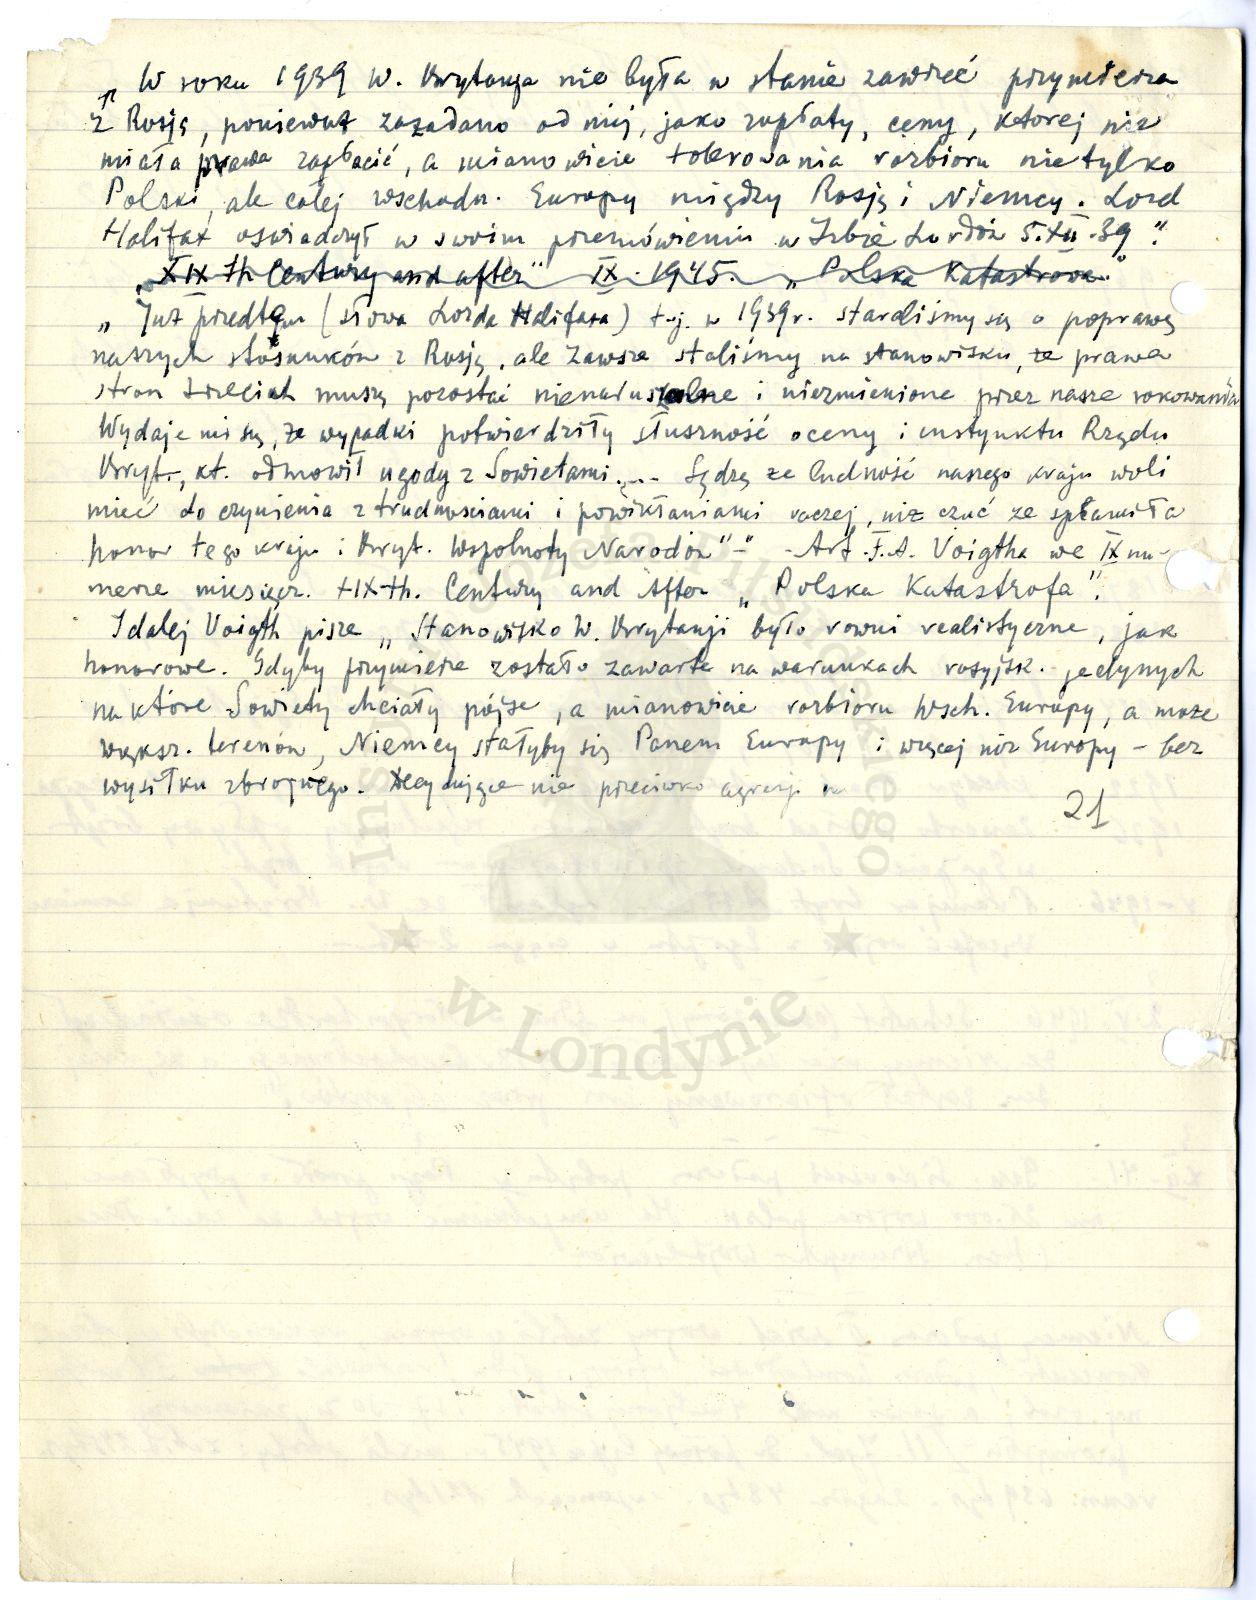 „ W roku 1939 W. Brytanja nie była w stanie zawrzeć przymierza
z Rosją, ponieważ zażądano od niej, jako zapłaty, ceny, ktorej nie
miała prawa zapłacić, a mianowicie tolerowania rozbioru nietylko
Polski, ale całej wschodn. Europy między Rosją i Niemcy. Lord
Halifax oświadczył w swoim przemówieniu w Izbie Lordów 5.XII.39".
„XIX-th Century and after" IX. 1945. „Polska Katastrova."
„ Już przedtem (słowa Lorda Halifaxa) t.j. w 1939 r. staraliśmy się o poprawę
naszych stosunków z Rosją, ale zawsze staliśmy na stanowisku, że prawa
stron trzecich muszą pozostać nienaruszalne i niezmienione przez nasze rokowania
Wydaje mi się, że wypadki potwierdziły słuszność oceny i instynktu Rządu
Bryt., kt. odmowił ugody z Sowietami ... Sądzę że ludność naszego kraju woli
mieć do czynienia z trudnościami i powikłaniami raczej, niż czuć że splamiła
honor tego kraju i Bryt. Wspolnoty Narodów" - Art. F.A. Voigtha we IX nu-
merze miesięcz. XIX-th. Century and After „Polska Katastrofa".
I dalej Voigth pisze „Stanowisko W. Brytanji było rowni realistyczne, jak
honorowe. Gdyby przymierze zostało zawarte na warunkach rosyjsk. jedynych
na które Sowiety chciały pójsc, a mianowicie rozbioru wsch. Europy, a może
większ. terenów, Niemcy stałyby się Panem Europy i więcej niż Europy - bez
wysiłku zbrojnego. Decydujące nie przeciwko agresji
21
Instytut Józefa Piłsudskiego
w Londynie